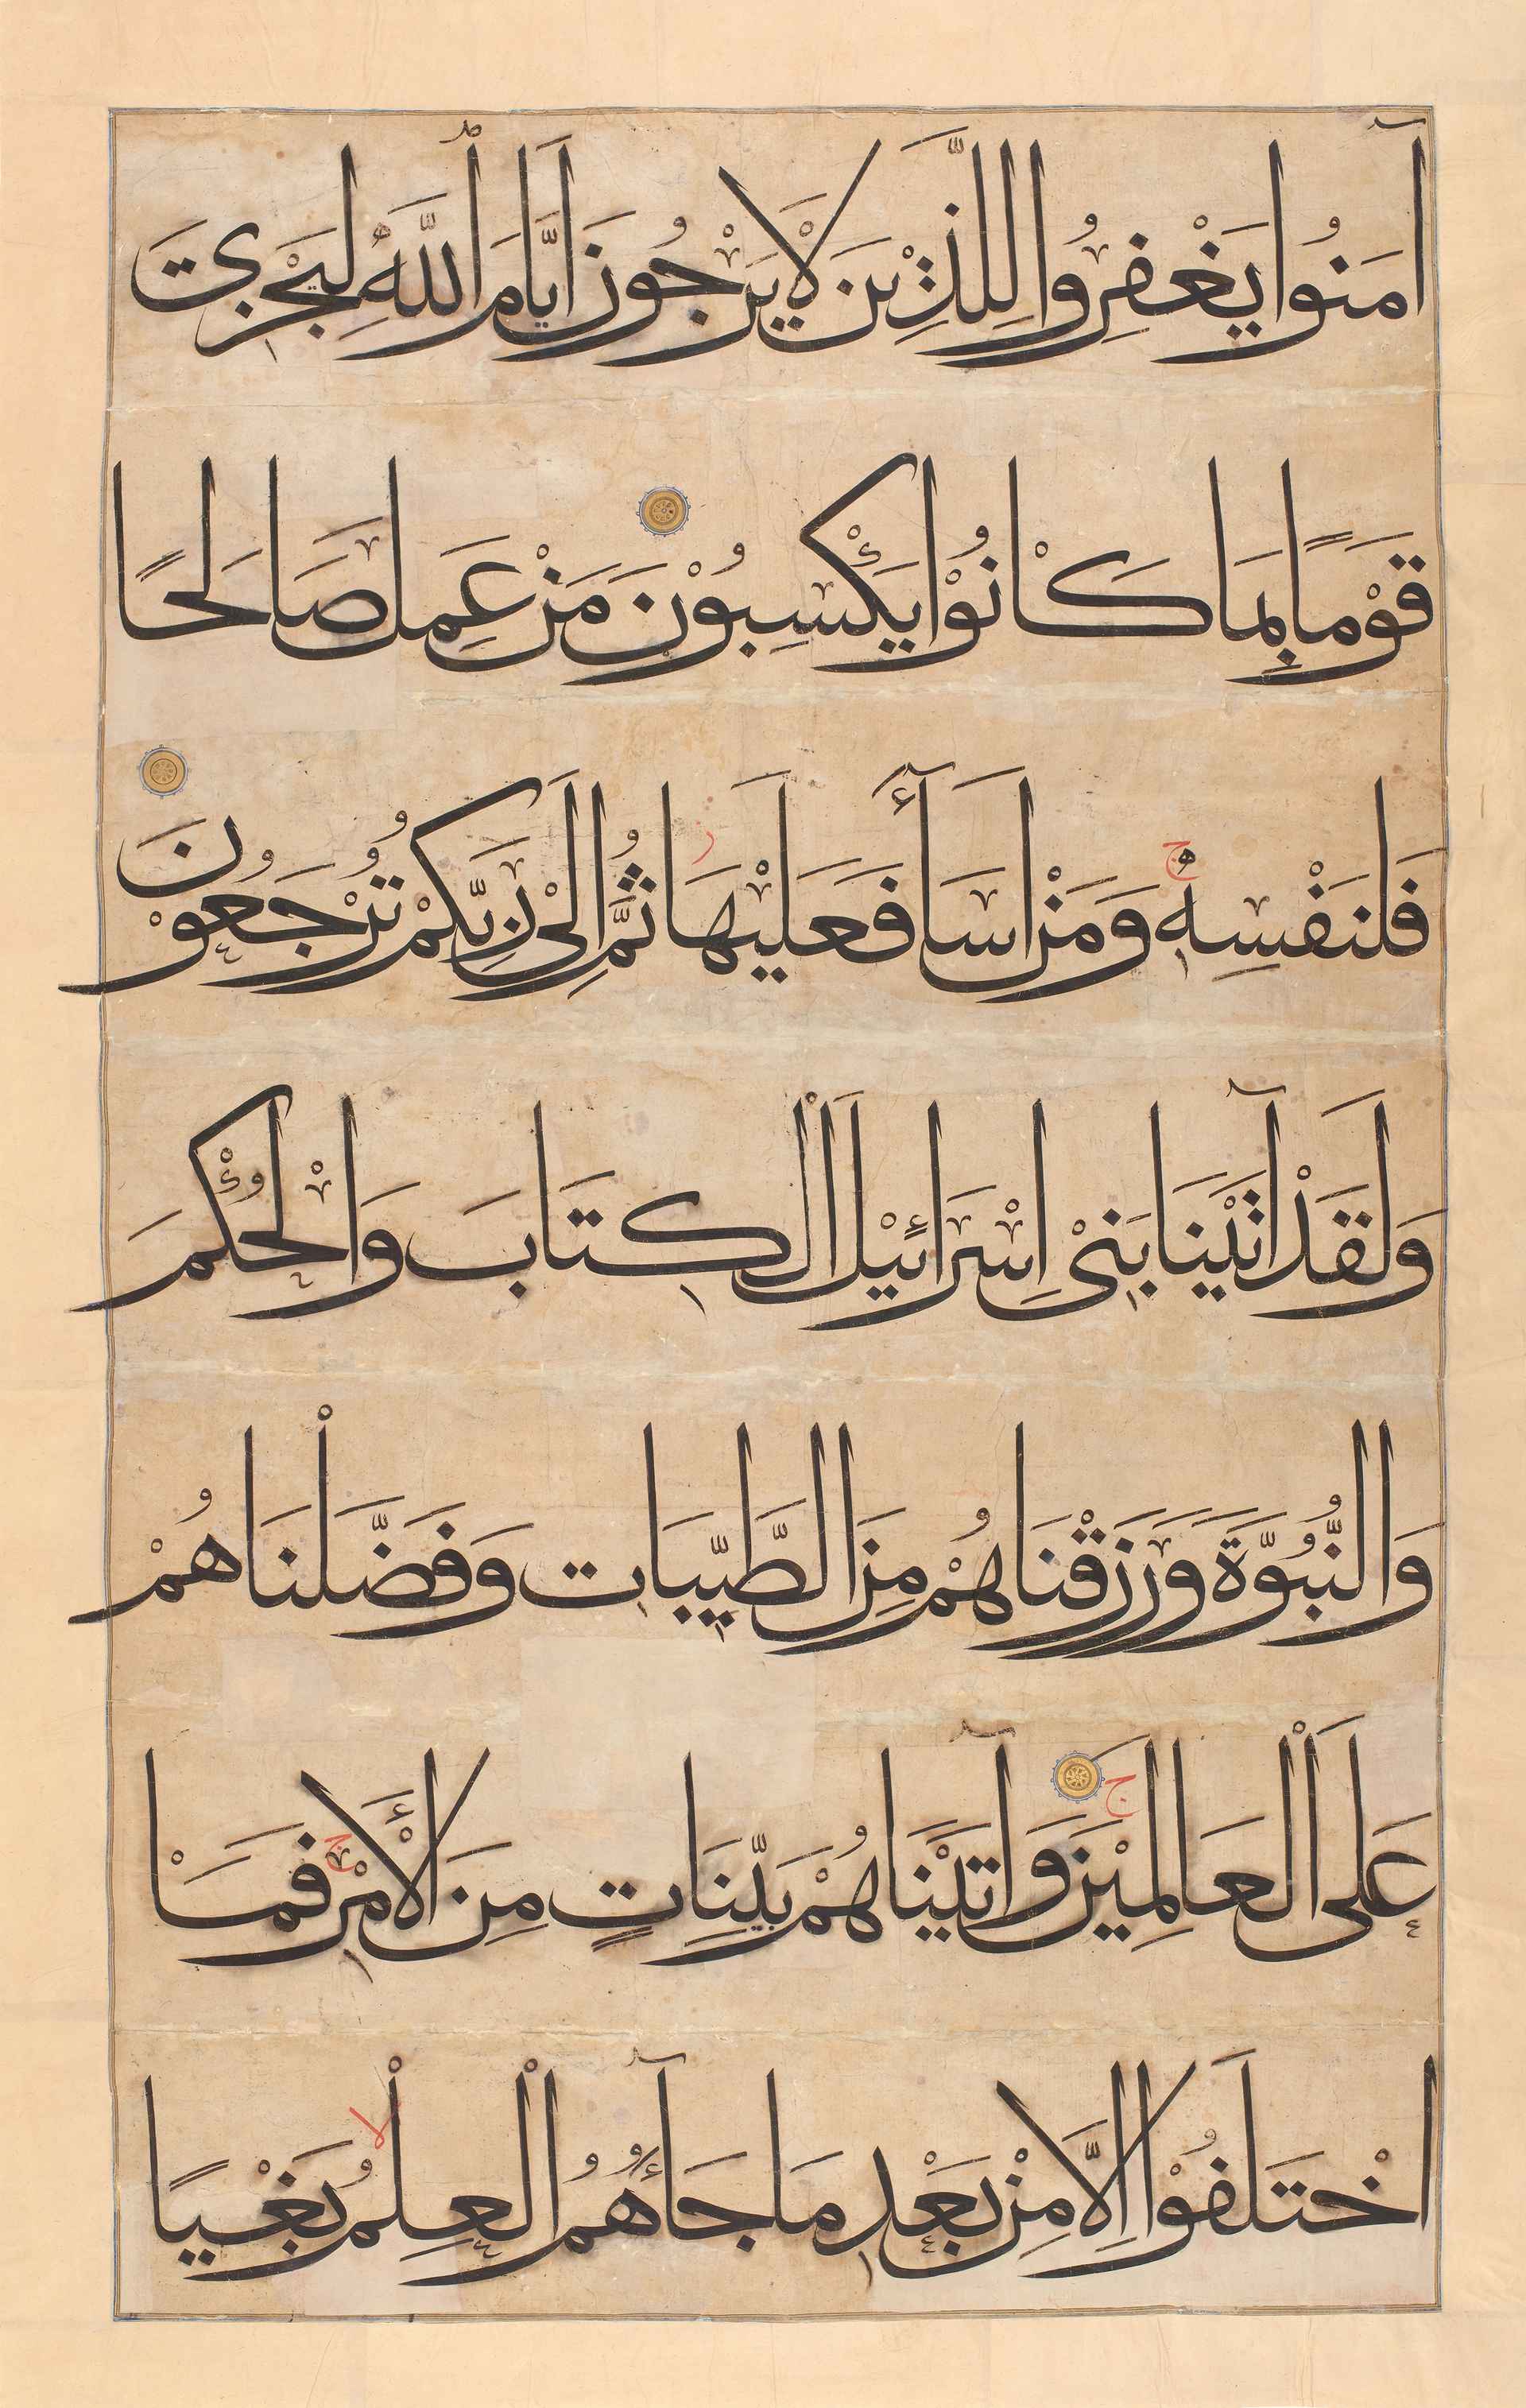 آمَنُوا يَغْفِرُوا لِلَّذِيْنَ لَا يَرْجُونَ أَيَّامَ اللَّهِ لِيَجْزِيَ
قَوْمًا بِمَا كَانُوْا يَكْسِبُوْنَ مَنْ عَمِلَ صَالَحًا
فَلنَفْسِهِ وَمَنْ اَسَآءَ فَعَلَيْهَا ثُمَّ اِلَىْ رَبِّكُمْ تُرْجَعُوْنَ
وَلَقَدْ آتَيْنَا بَنِىْ اِسْرَائِيْلَ الْكِتَابَ وَالْحُكْمَ
وَالنُّبُوَّةَ وَرَزَقْنَاهُمْ مِنَ الطَّيِّبَاتِ وَفَضَّلْنَاهُمْ
عَلَى الْعَالَمِيْنَ وَآتَيْنَاهُمْ بَيِّنَاتٍ مِنَ الْأَمْرِ فَمَا
اخْتَلَفُوْا اِلَّا مِنْ بَعْدِ مَا جَآءَهُمُ الْعِلْمُ بَغْيًا